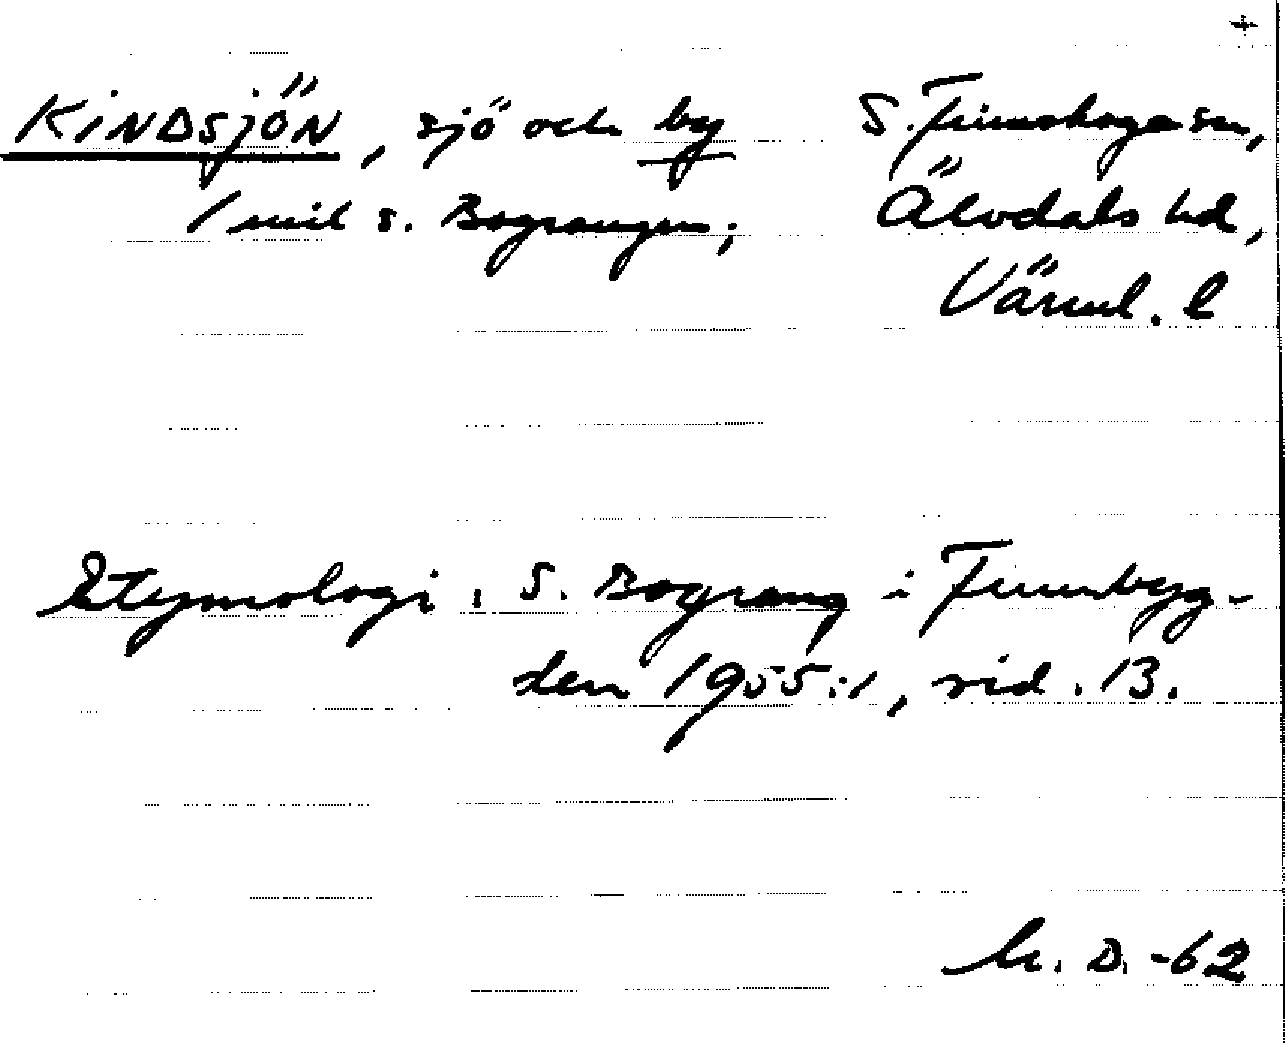 +
KINDSJÖN, sjö och by S. Finnskoga sn,
1 mil s. Bograngen; Älvdals hd,
Värml. l
Etymologi, S. Bograng i Finnbyg-
den 1955:1, sid. 13.
D. -62